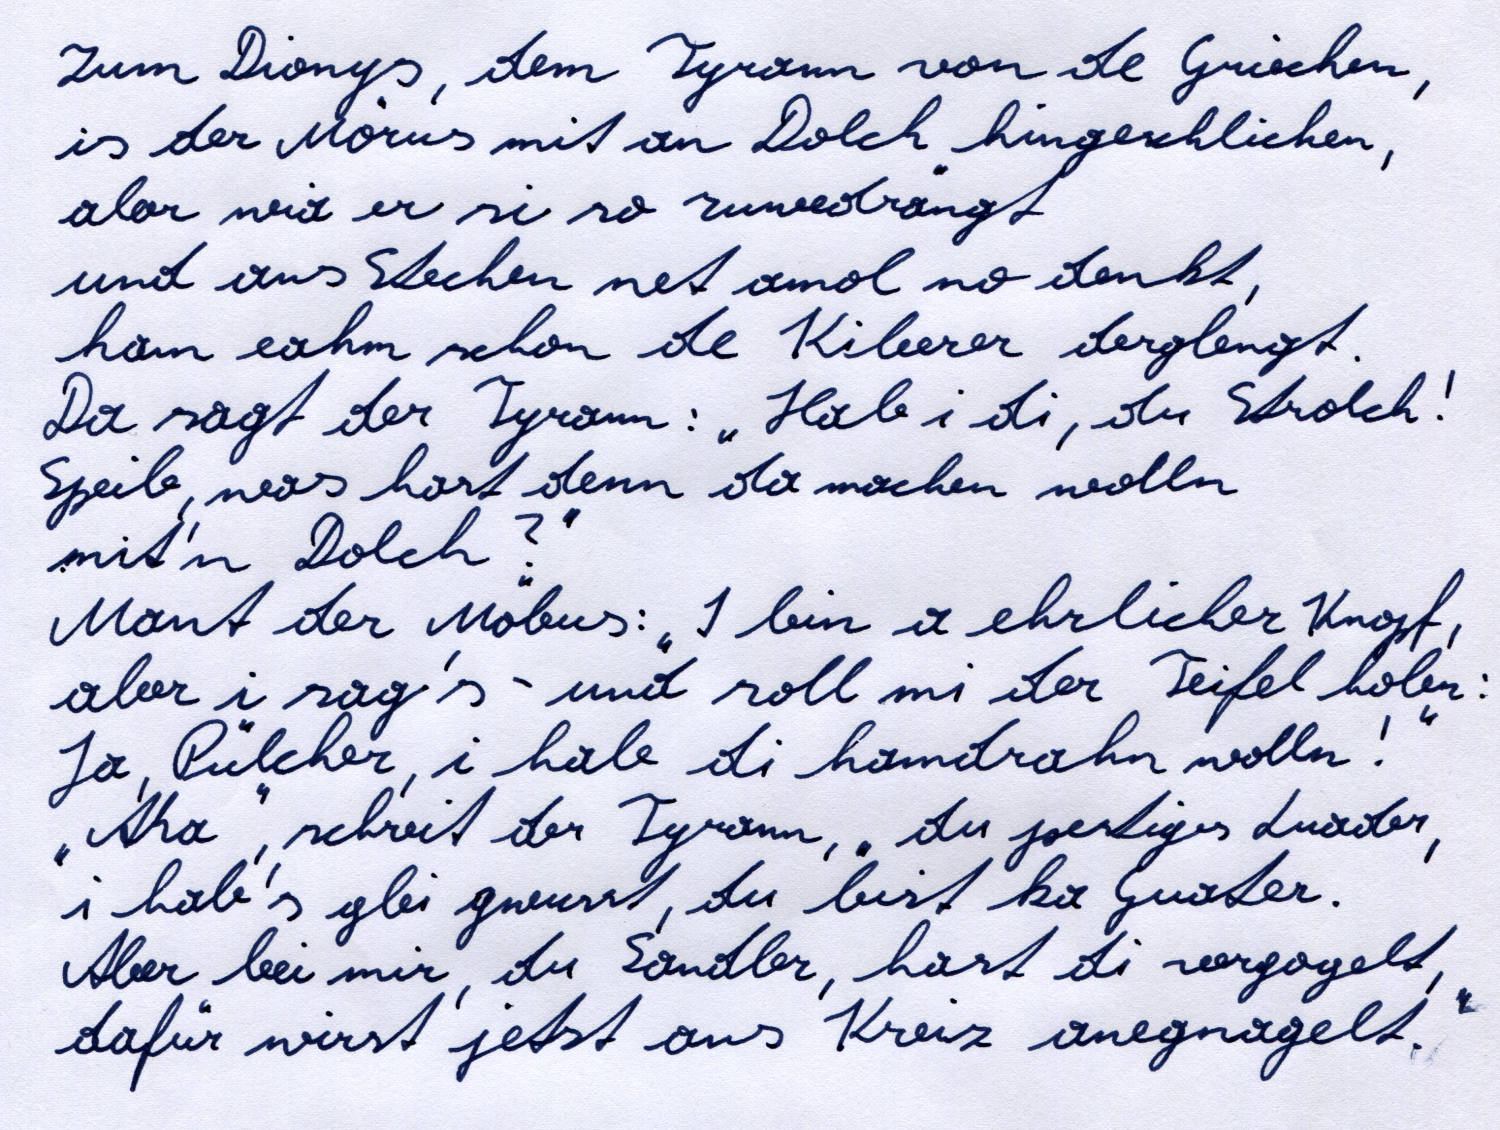 Zum Dionys, dem Tyrann von de Griechen,
is der Mörus mit an Dolch hingeschlichen,
aber wia er si so zuwedrängt
und ans Stechen net amol no denkt,
ham eahm schon de Kiberer derglengt.
Da sagt der Tyrann: „Hab i di, du Strolch!
Speib, was hast denn da machen wolln
mit'n Dolch?“
Mant der Möbus: „I bin a ehrlicher Knopf,
aber i sag's - und soll mi der Teifel holen:
Ja, Pülcher, i habe di hamdrahn wolln!“
„Aha“, schreit der Tyrann, „du pestiges Luader,
i hab's glei gwusst, du bist ka Guater.
Aber bei mir, du Sandler, hast di vergogelt,
dafür wirst jetzt ans Kreiz anegnagelt.“